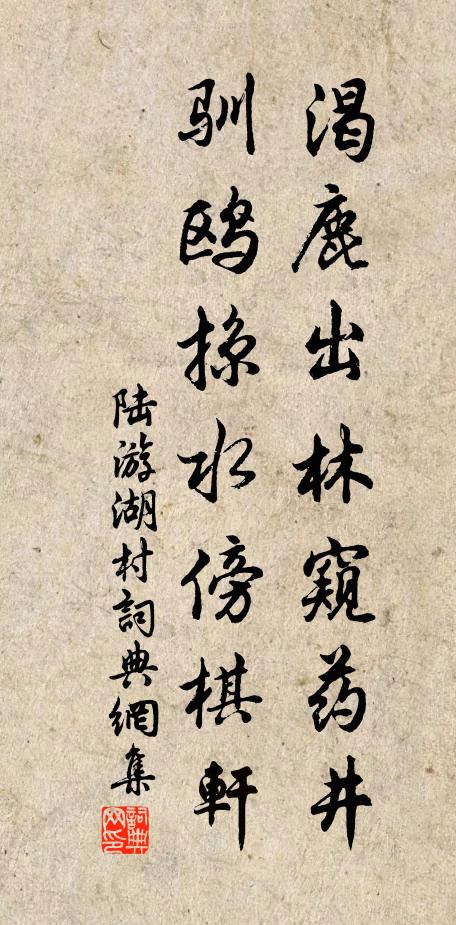 渴鹿出林窥药井
驯鸥掠水傍棋軒
陆游湖村詞典網集
詞典
网印